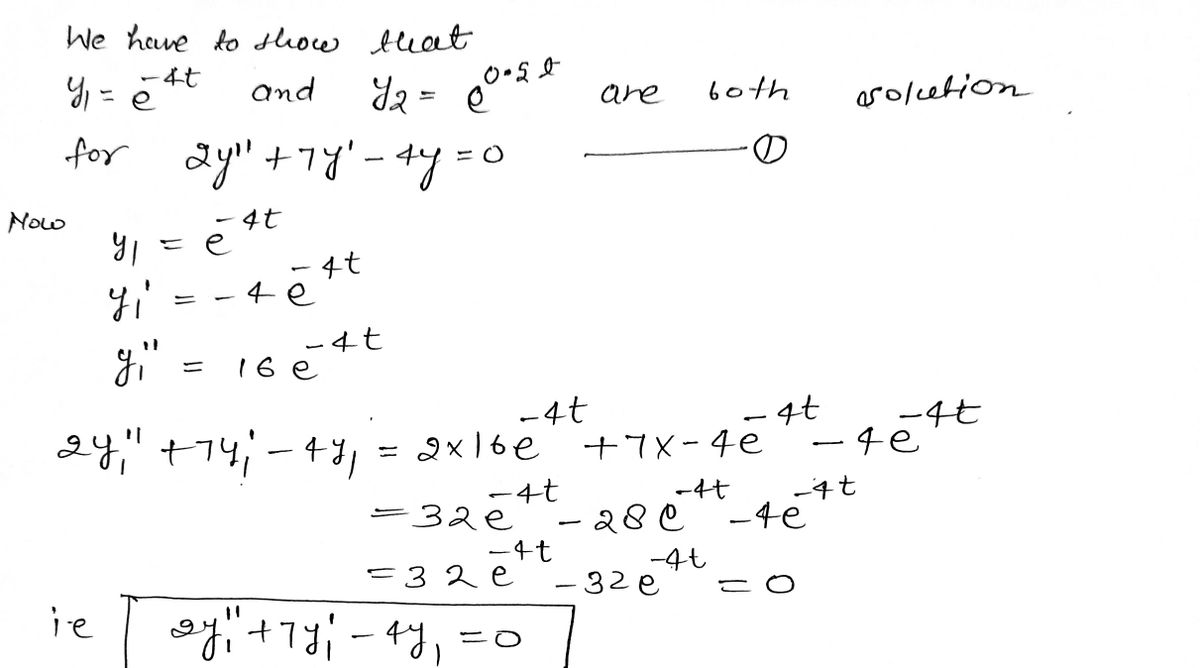 We have to show that
y₁ = e^-4t and y₂ = e^0.5t are both solution
for 2y'' + 7y' - 4y = 0 ——— ①
Now y₁ = e^-4t
y₁' = -4e^-4t
y₁'' = 16e^-4t
2y₁'' + 7y₁' - 4y₁ = 2×16e^-4t + 7×-4e^-4t - 4e^-4t
= 32e^-4t - 28e^-4t - 4e^-4t
= 32e^-4t - 32e^-4t = 0
i.e 2y₁'' + 7y₁' - 4y₁ = 0